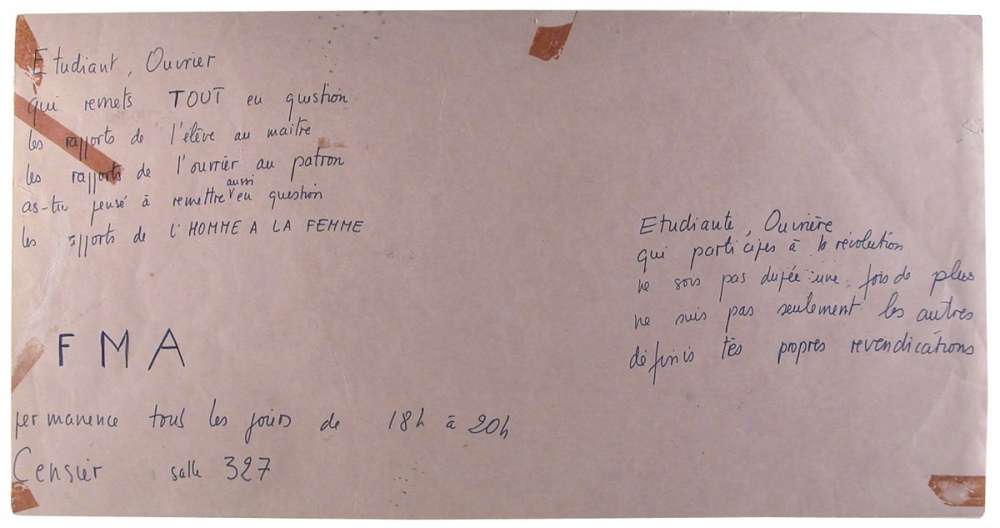 Etudiant, Ouvrier
qui remets TOUT en question
les rapports de l'élève au maitre
les rapports de l'ouvrier au patron
as-tu pensé à remettre aussi en question
les rapports de L'HOMME A LA FEMME
FMA
permanence tous les jours de 18h à 20h
Censier salle 327
Etudiante, Ouvrière
qui participes à la révolution
ne sois pas dupée une fois de plus
ne suis pas seulement les autres
définis tes propres revendications